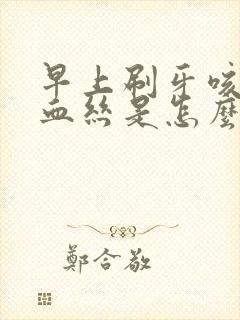 早上刷牙咳
血絲是怎麼
鄭合敬